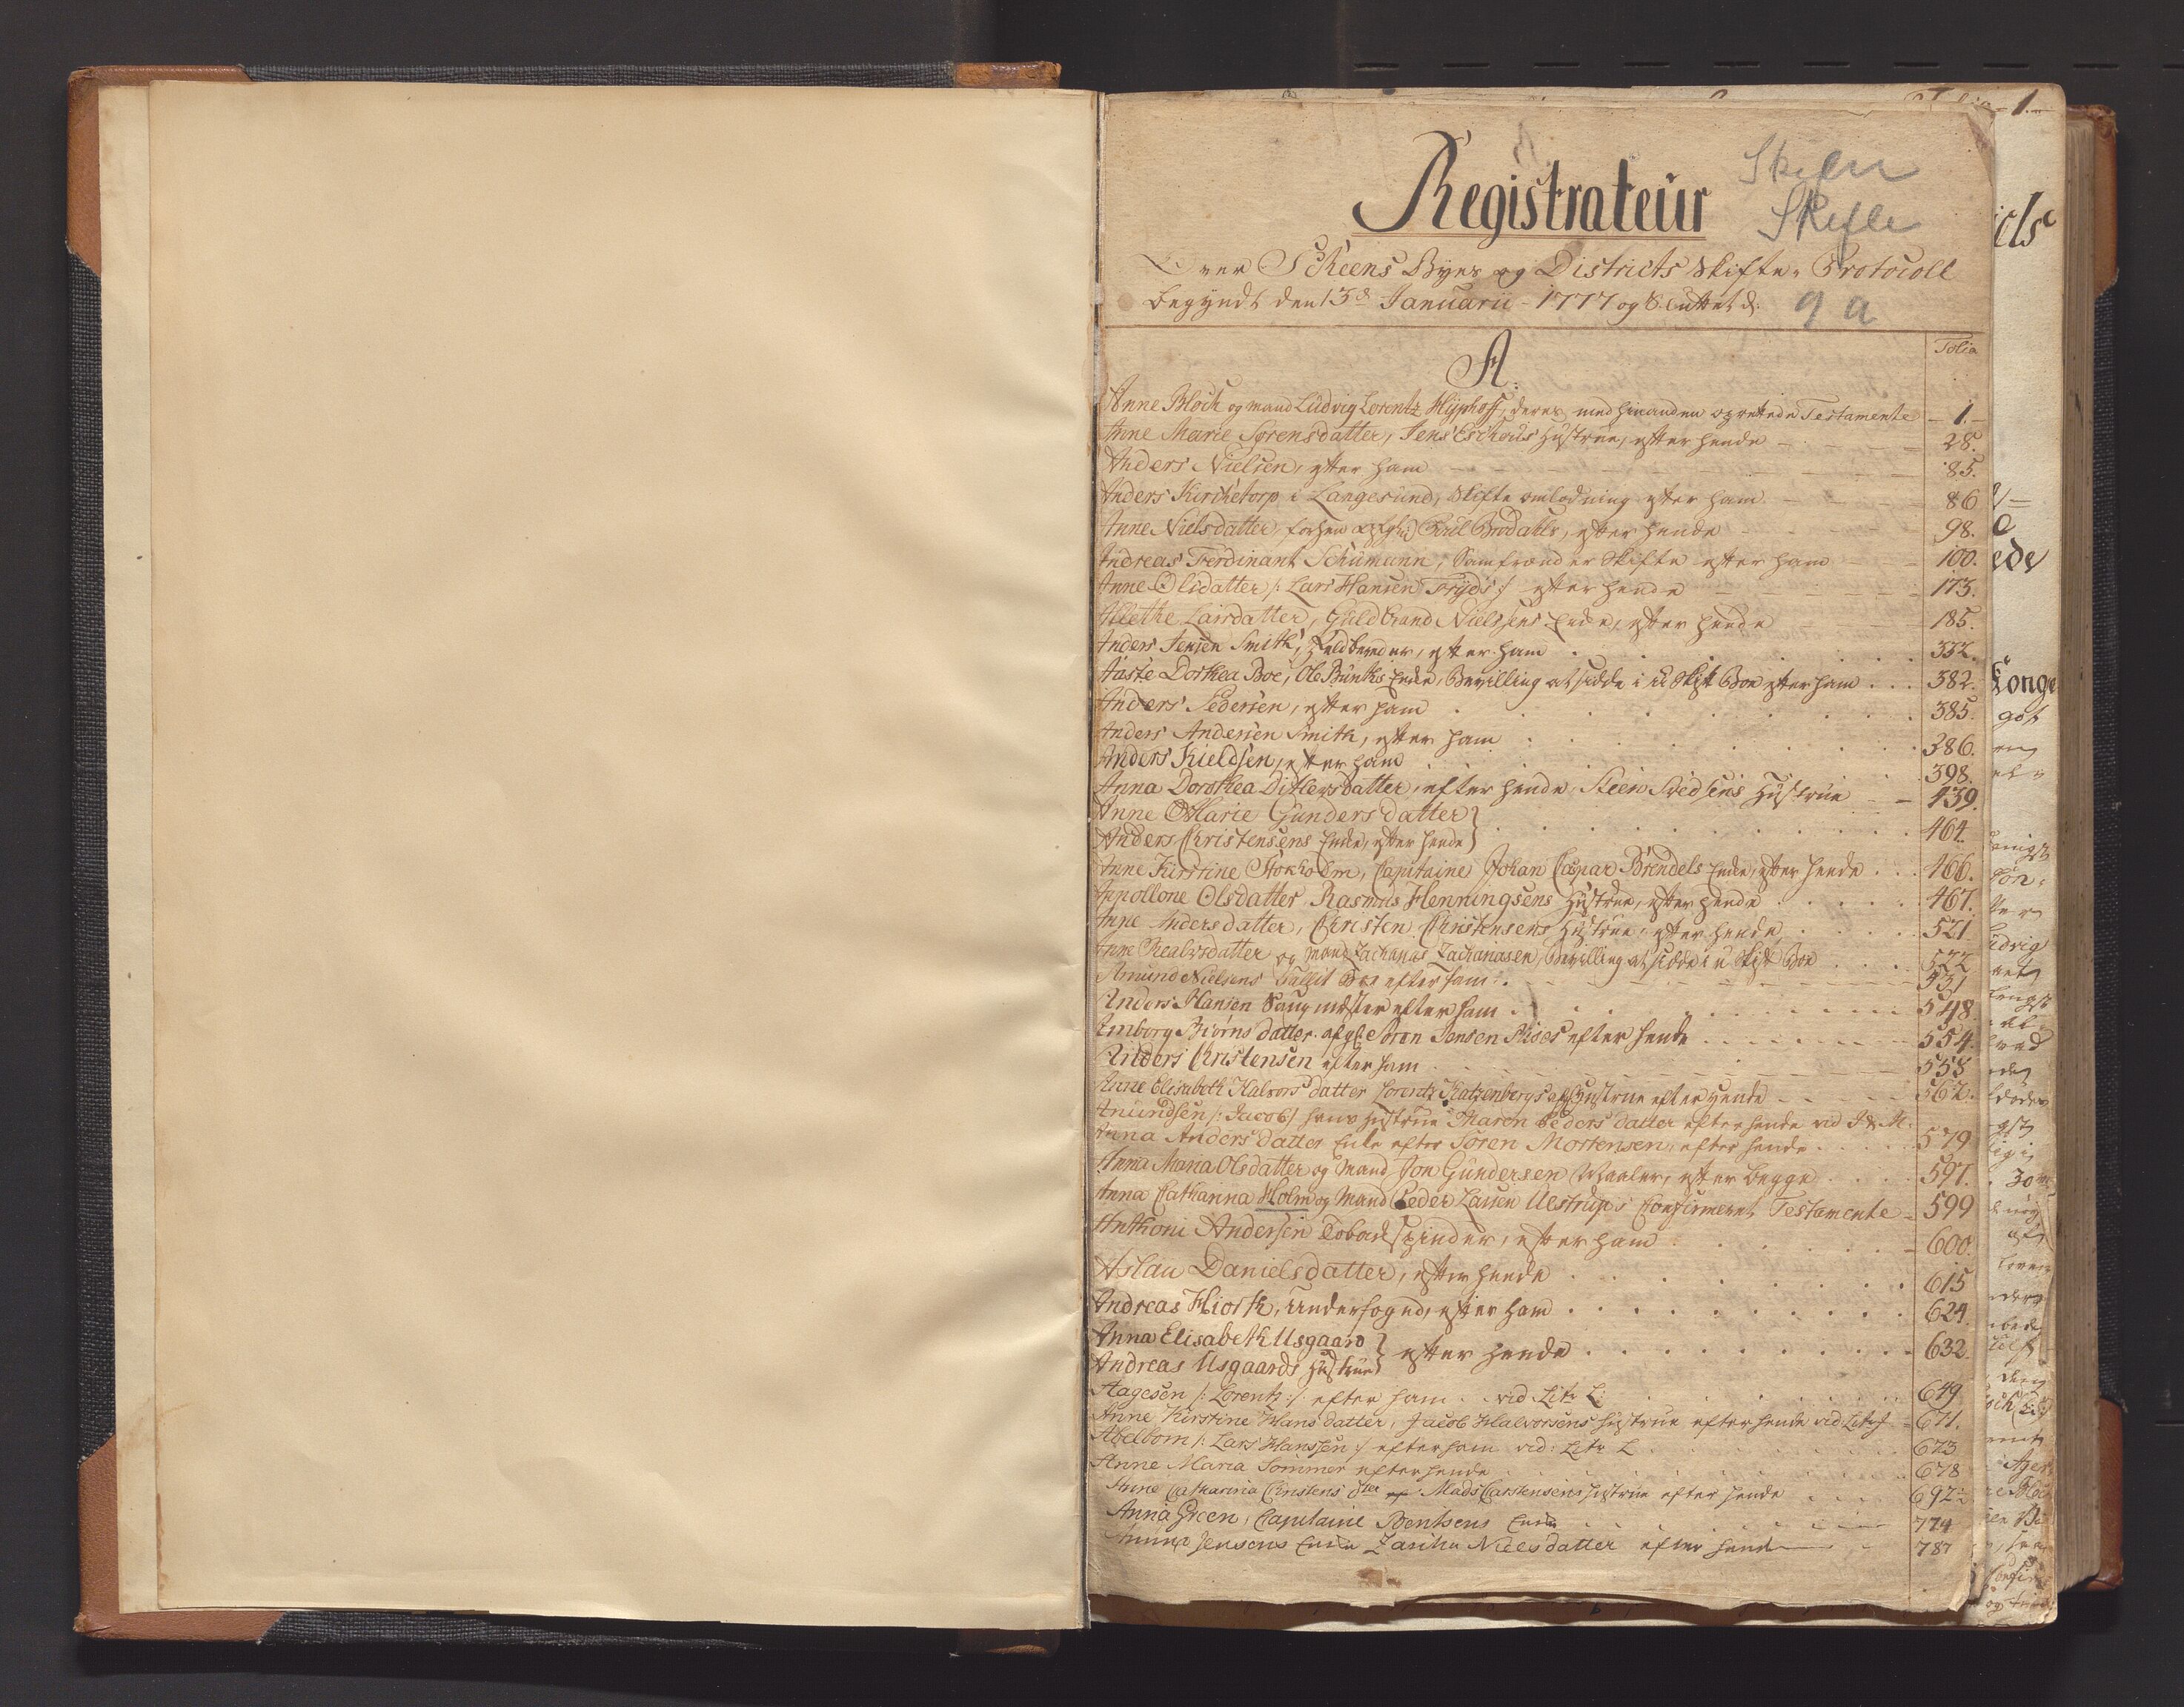 Registrateur
Skien
Skifte
9 a
Over Scheens Byes og Districts Skifte-Protocoll
begyndt den 13de Januarii 1777 og Sluttet d.
Folia
A:
Anne Bloch og mand Ludvig Lorentz Hyphoff, deres med hinanden oprettede Testamente 1.
Anne Marie Sørensdatter, Jens Hustrue, efter hende 28.
Anders Nielsen, efter ham 85.
Anders Kirchetorp i Langesund, Skifte omlodning efter ham 86
Anne Nielsdatter forhen Poul Brodahls, efter hende 98.
Andreas Ferdinant Schumann, Samfrænder Skifte efter ham 100.
Anne Olsdatter /: Lars Hansen Fryds :/ efter hende 173.
Alethe Larsdatter, Guldbrand Nielssens Enke, efter hende 185.
Anders Jensen Smith, Feldbereder, efter ham 332.
Aaste Dorthea Boe, Ole Bunkis Enke, Bevilling at sidde i u Skift Boe efter ham 382.
Anders Pedersen, efter ham 385.
Anders Andersen Smith, efter ham 386.
Anders Kieldsen, efter ham 398.
Anna Dorothea Ditlevsdatter, efter hende, Steen Hustrue 439.
Anne Marie Gundersdatter
Anders Christensens Enke, efter hende 464.
Anne Kirstine Stokholm, Capitaine Johan Caspar Brendels Enke, efter hende 466.
Appollone Olsdatter Rasmus Henningsens Hustrue, efter hende 467.
Anne Andersdatter, Christen Christensens Hustrue, efter hende 521
Anne og Mand Zacharias Zachariasen, Bevilling at sidde i u Skift Boe 522
Amund Nielsens Fallit Boe efter ham 531
Anders Hansen Saugmester efter ham 548
Amborg Biørnsdatter afg. Søren Jensen Riises efter hende 554.
Anders Christensen efter ham 555
Anne Elisabeth Halvorsdatter Lorentz Katzenbergs afg. Hustrue efter hende 562.
Amundsen /: Jacob :/ hans Hustrue Maren Pedersdatter efter hende vid J & M.
Anna Andersdatter Enke efter Søren Mortensen, efter hende 579
Anna Maria Olsdatter og Mand Jon Gundersen Waaler, efter begge 597.
Anna Catharina Holm og Mand Peder Larsen Alstrups Confirmeret Testamente 599
Anthoni Andersen Tobachspinder, efter ham 600.
Aslau Danielsdatter, efter hende 615
Andreas Hiorth, Underfoged, efter ham 624.
Anna Elisabeth Usgaard
Andreas Usgaards Hustrue efter hende 632.
Aagesen /: Lorentz :/ efter ham vid Litr L: 649
Anne Kirstine Hansdatter, Jacob Halvorsens hustrue efter hende vid Litr J 671.
Abelborn /: Lars Hanssen :/ efter ham vid: Litr L 673
Anne Maria Sommer efter hende 678
Anne Catharina Christensdtter Mads Carstensens hustrue efter hende 692
Anna Green, Capitaine Bentsens Enke 774
Amund Jensens Enke Nielsdatter efter hende 787